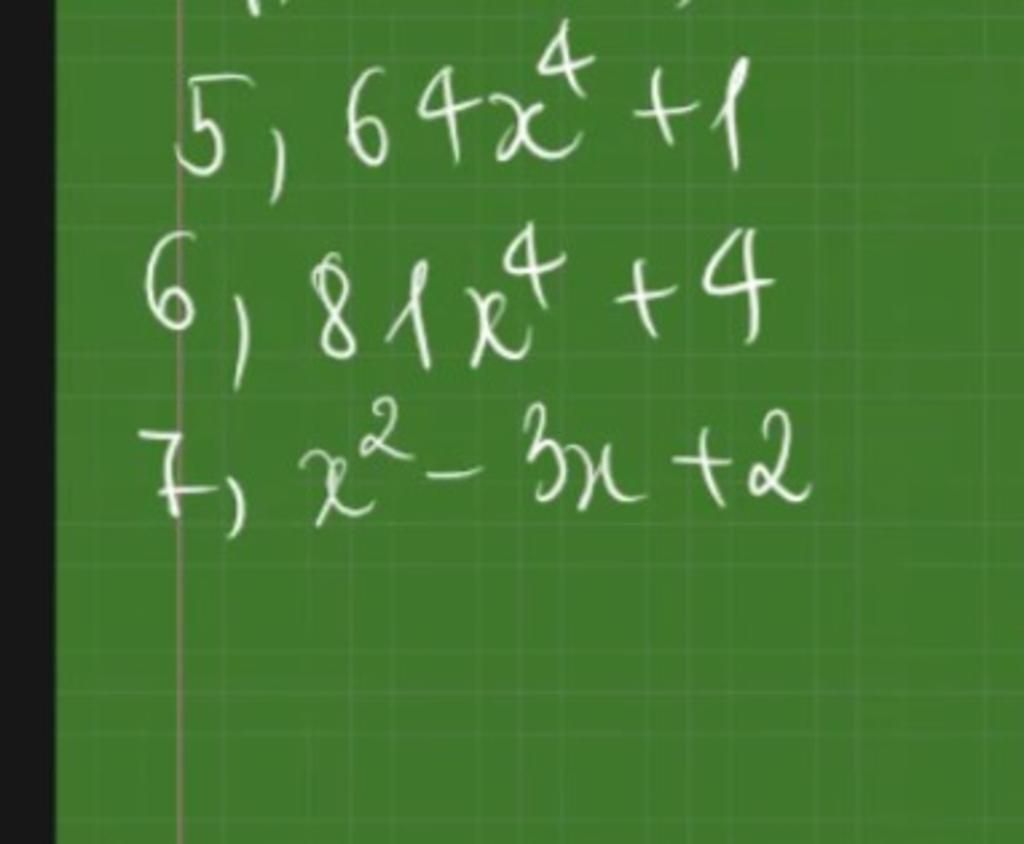 5, 64x⁴ + 1
6, 81x⁴ + 4
7, x² - 3x + 2